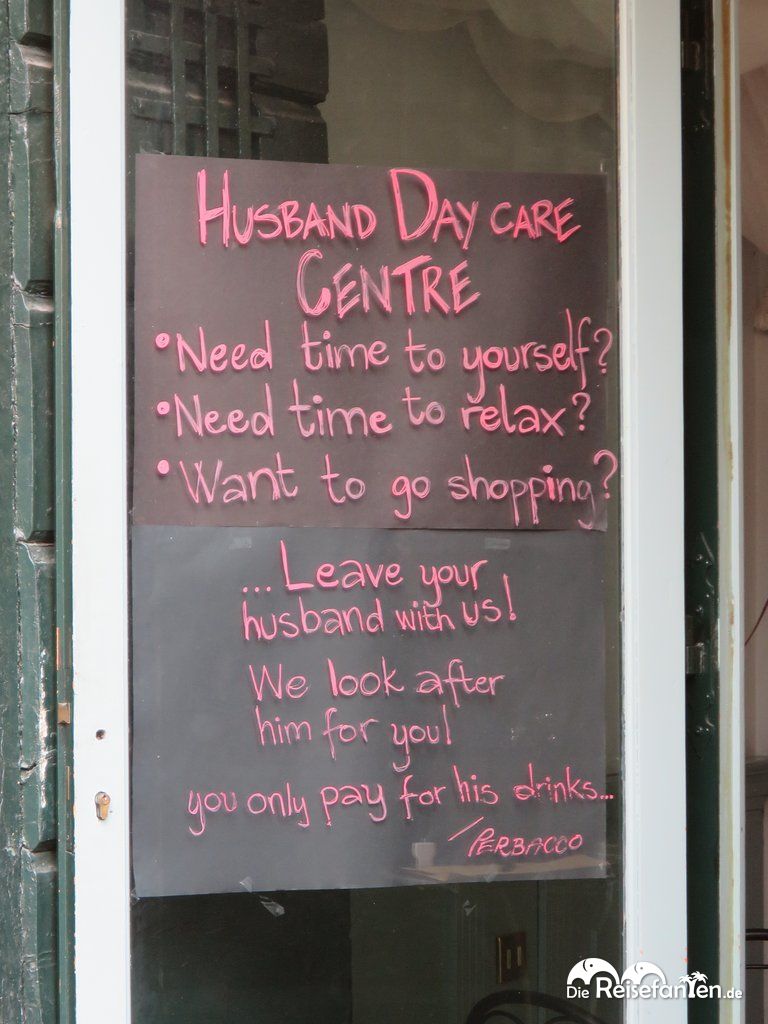 HUSBAND DAY CARE
CENTRE
• Need time to yourself?
• Need time to relax?
• Want to go shopping?
... Leave your
husband with us!
We look after
him for you!
you only pay for his drinks...
PERBACCO
Die Reisefanten.de